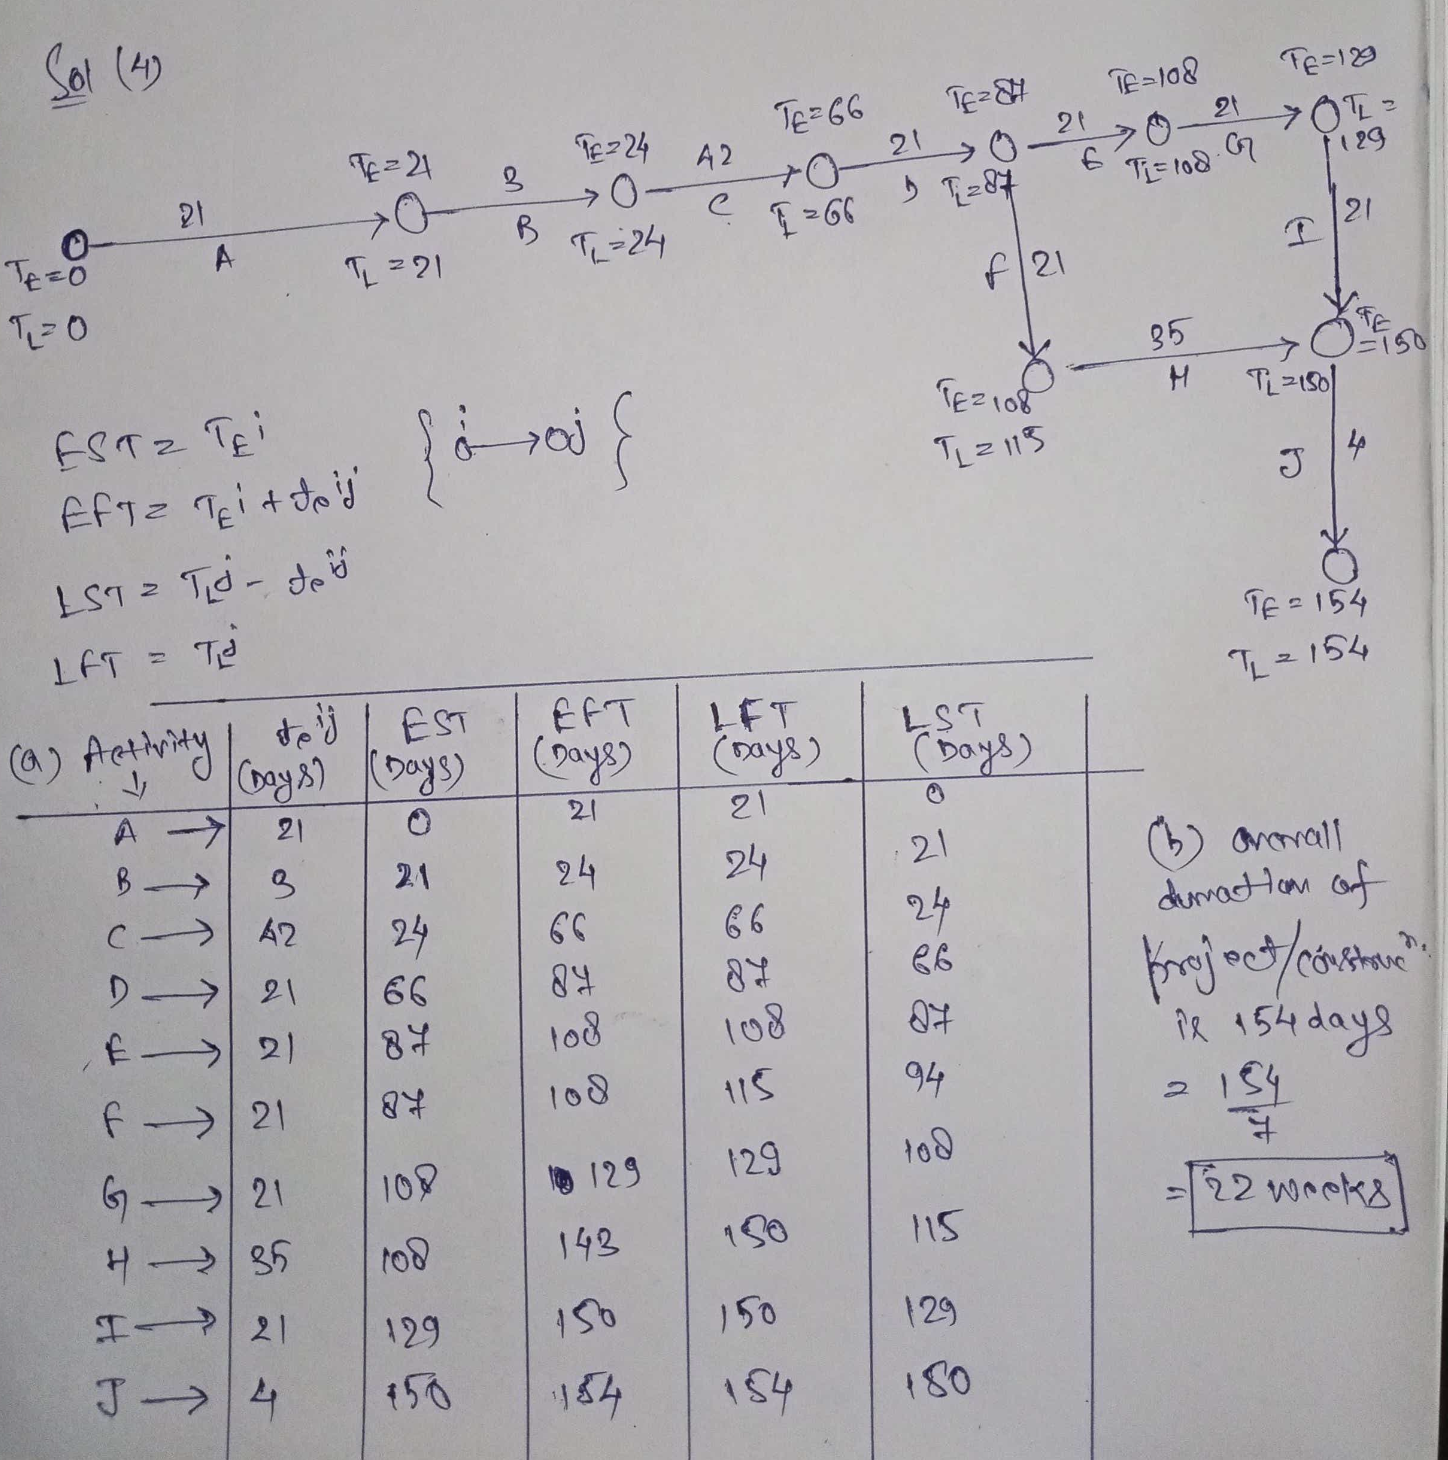 Sol (4)
TE=0
TL=0
21
A
TE=21
TL=21
3
B
TE=24
TL=24
42
C
TE=66
TL=66
21
D
TE=87
TL=87
21
E
TE=108
TL=108
21
G
TE=129
TL=
129
F 21
I 21
TE=108
TL=115
35
H
TE
=150
TL=150
J 4
TE=154
TL=154
EST = TEi { i→j }
EFT = TEi + teij
LST = TLj - teij
LFT = TLj
(a) Activity | teij (Days) | EST (Days) | EFT (Days) | LFT (Days) | LST (Days)
A → 21 0 21 21 0
B → 3 21 24 24 21
C → 42 24 66 66 24
D → 21 66 87 87 66
E → 21 87 108 108 87
F → 21 87 108 115 94
G → 21 108 129 129 108
H → 35 108 143 150 115
I → 21 129 150 150 129
J → 4 150 154 154 150
(b) overall
duration of
project/construcn.
is 154 days
= 154/7
= 22 weeks